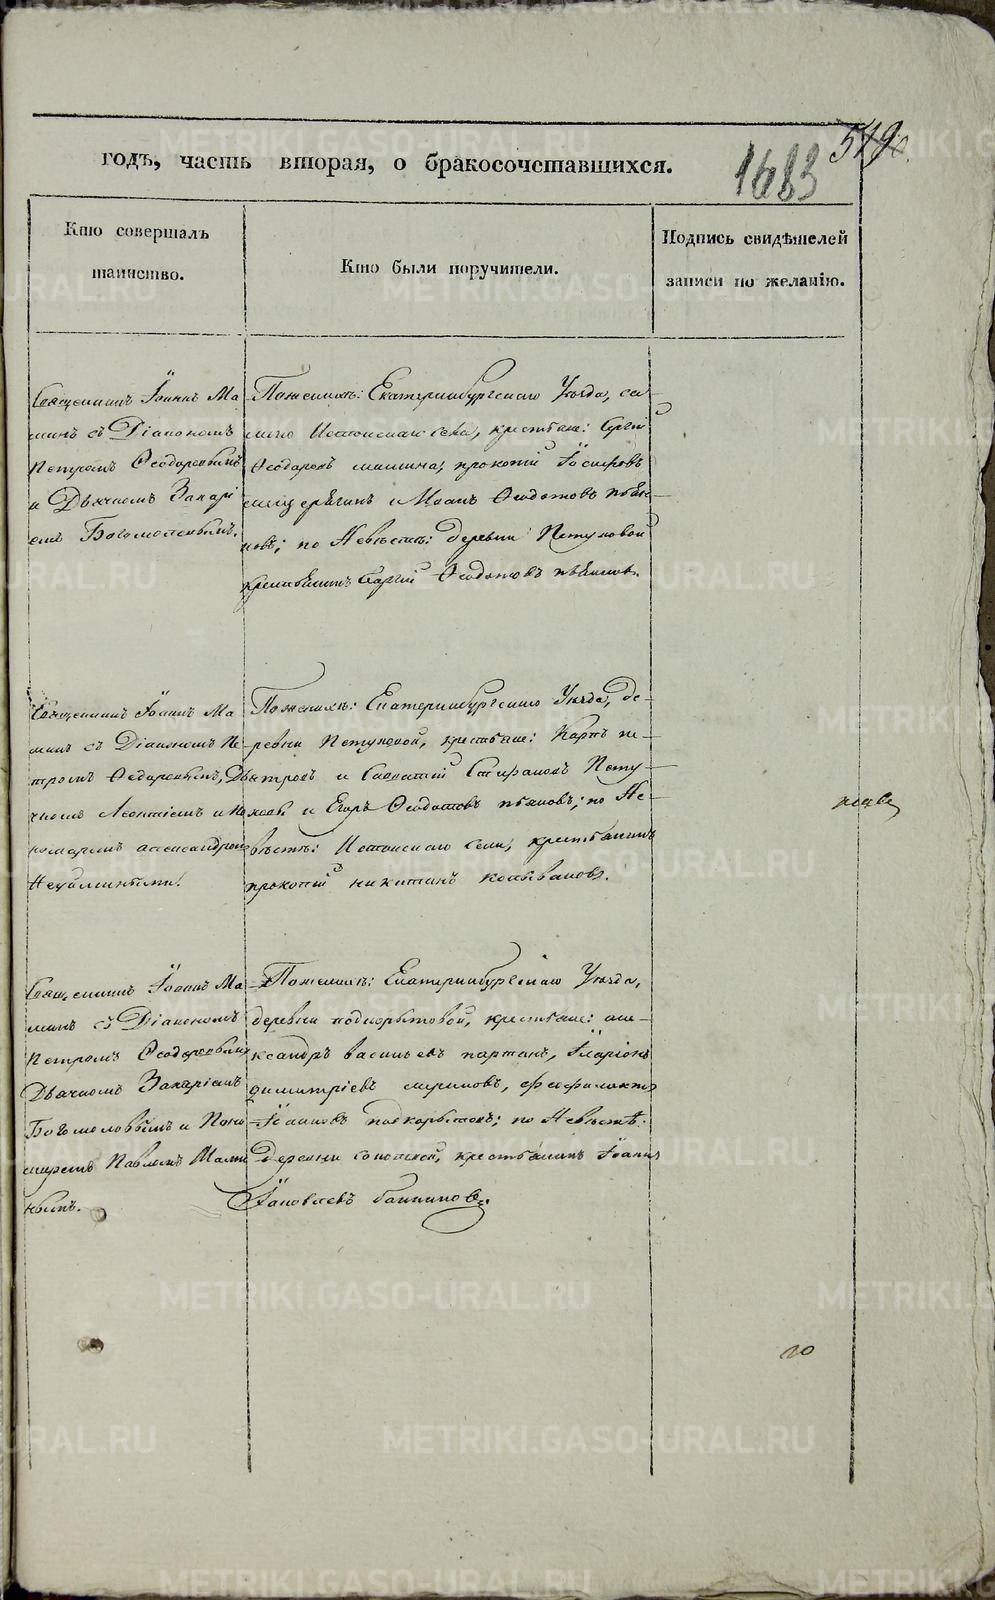 годъ, часть вторая, о бракосочетавшихся.
1683
519
Кто совершалъ
таинство.
Кто были поручители.
Подпись свидѣтелей
записи по желанію.
Священникъ Іоаннъ Ма
минъ съ Діакономъ
Петромъ Ѳеодоровымъ
и Дьячкомъ Захарі
емъ Богомоловымъ.
По женихѣ: Екатеринбургскаго Уѣзда, се-
ла Истокскаго, крестьяне: Сергій
Ѳеодоровъ, Прокопій Іосифовъ
и Иванъ Ѳедотовъ пьян-
ковъ; по Невѣстѣ: деревни Петуховой
крестьянинъ Сергій Ѳедотовъ пьянковъ.
Священникъ Іоаннъ Ма
минъ съ Діакономъ Пе
тромъ Ѳедоровымъ, Дья
чкомъ Леонтіемъ и По
номаремъ Александромъ
По женихѣ: Екатеринбургскаго Уѣзда, де-
ревни Петуховой, крестьяне: Карпъ пе-
тровъ и Савватій Стефановъ Пету-
ховы и Егоръ Ѳедотовъ пьянковъ; по Не-
вѣстѣ: Истокскаго села, крестьянинъ
прокопій никитинъ колывановъ.
Священникъ Іоаннъ Ма
минъ съ Діакономъ
Петромъ Ѳеодоровымъ
Дьячкомъ Захаріемъ
Богомоловымъ и Поно
маремъ Павломъ Мами
нымъ.
По женихѣ: Екатеринбургскаго Уѣзда,
деревни подкорытовой, крестьяне: але-
ксандръ васильевъ партинъ, Иларіонъ
димитріевъ шириновъ, феофилактъ
Іоанновъ подкорытовъ; по Невѣстѣ:
Деревни сопотской, крестьянинъ Іоаннъ
Іаковлевъ банниковъ.
METRIKI.GASO-URAL.RU